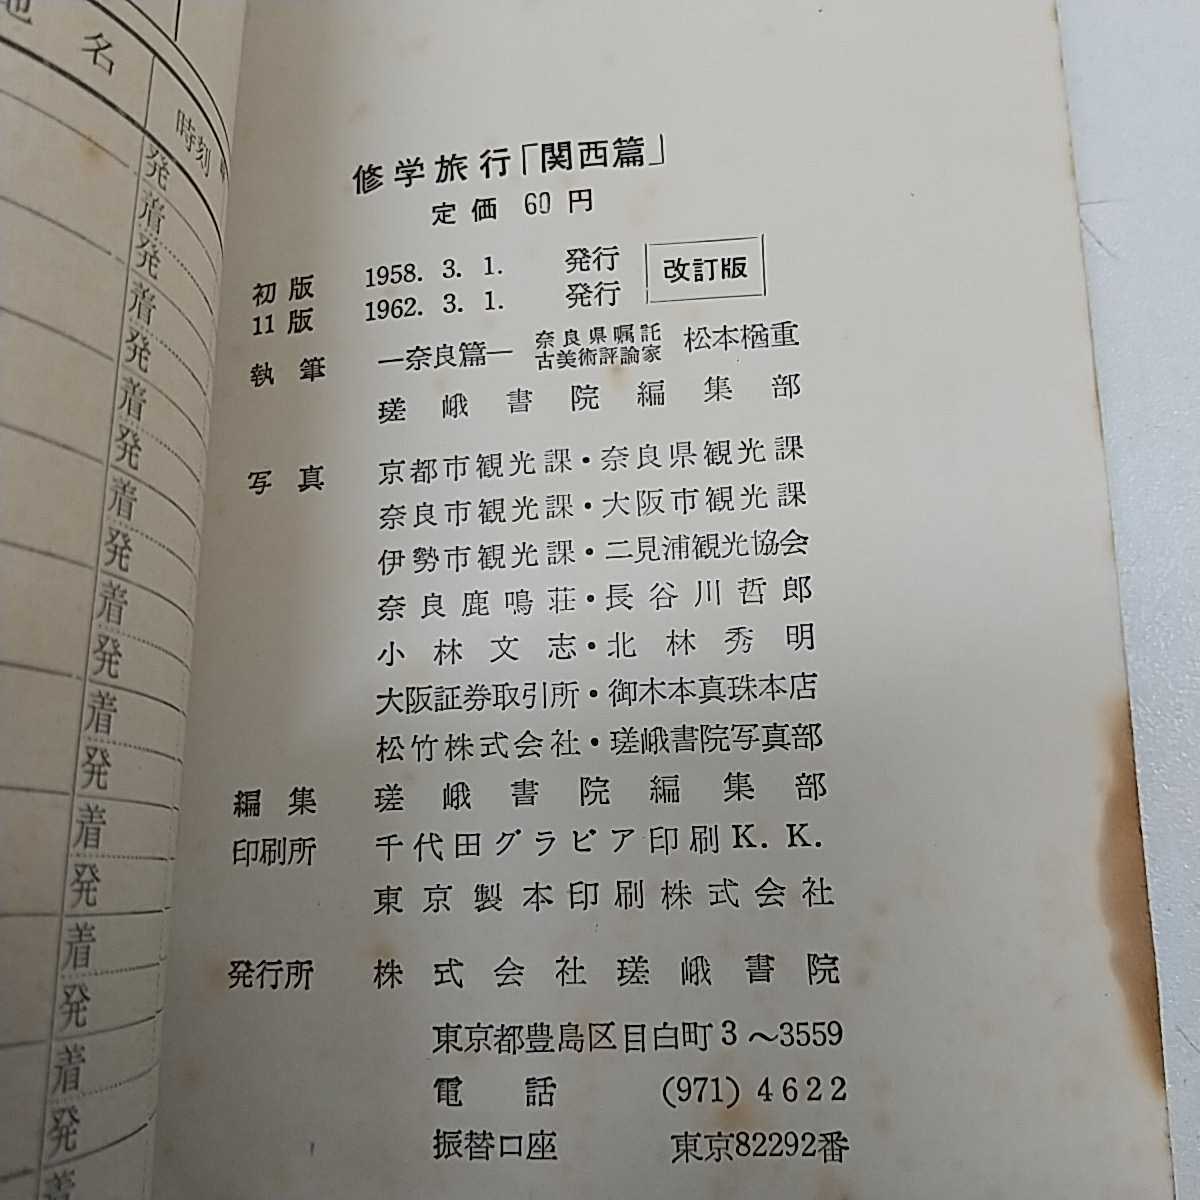 地名
時刻
発
着
発
着
発
着
発
着
発
着
発
着
発
着
発
着
発
着
発
着
修学旅行「関西篇」
定価 60円
初版 1958. 3. 1. 発行
11版 1962. 3. 1. 発行
改訂版
執筆 ―奈良篇― 奈良県嘱託 古美術評論家 松本楢重
瑳峨書院編集部
写真 京都市観光課・奈良県観光課
奈良市観光課・大阪市観光課
伊勢市観光課・二見浦観光協会
奈良鹿鳴荘・長谷川哲郎
小林文志・北林秀明
大阪証券取引所・御木本真珠本店
松竹株式会社・瑳峨書院写真部
編集 瑳峨書院編集部
印刷所 千代田グラビア印刷K.K.
東京製本印刷株式会社
発行所 株式会社瑳峨書院
東京都豊島区目白町3~3559
電話 (971) 4622
振替口座 東京82292番